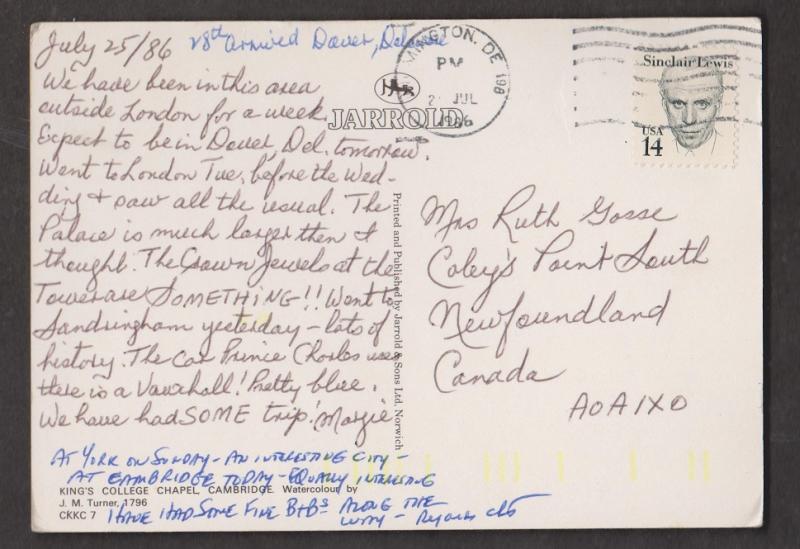 July 25/86 28th arrived Dover, Delaware
We have been in this area
outside London for a week.
Expect to be in Dover, Del. tomorrow.
Went to London Tue. before the Wed-
ding & saw all the usual. The
Palace is much larger then I
thought. The Crown Jewels at the
Tower are SOMETHING!! Went to
Sandringham yesterday - lots of
history. The car Prince Charles uses
there is a Vauxhall! Pretty blue.
We have had SOME trip! Margie
AT YORK ON SUNDAY - AN INTERESTING CITY -
AT CAMBRIDGE TODAY - EQUALLY INTERESTING
KING'S COLLEGE CHAPEL, CAMBRIDGE. Watercolour by
J. M. Turner, 1796
CKKC 7
HAVE HAD SOME FINE B+Bs ALONG THE
WAY -
JARROLD
Printed and Published by Jarrold & Sons Ltd. Norwich
MINGTON, DE 198
PM
JUL
1986
Sinclair Lewis
USA
14
Mrs Ruth Gosse
Coley's Point South
Newfoundland
Canada
A0A1X0